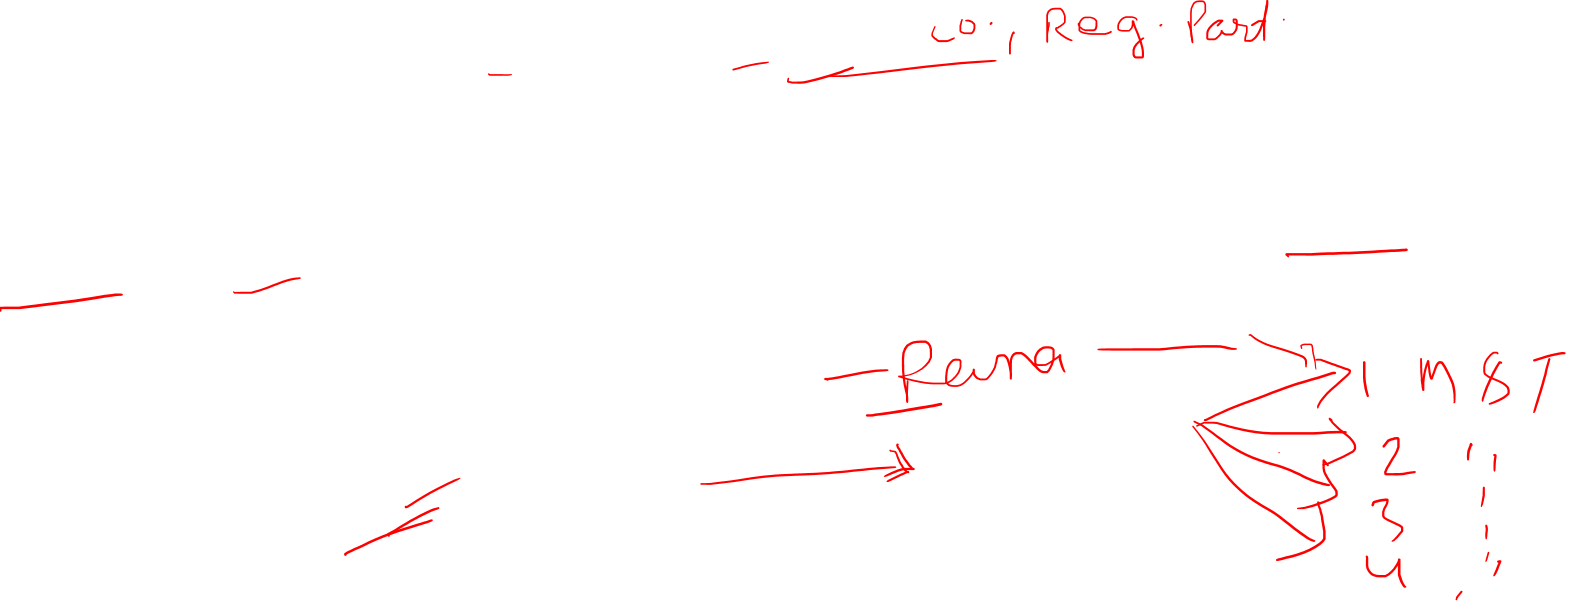 co., Reg. Part.
Rama 1 M & T
2 "
3 "
4 "